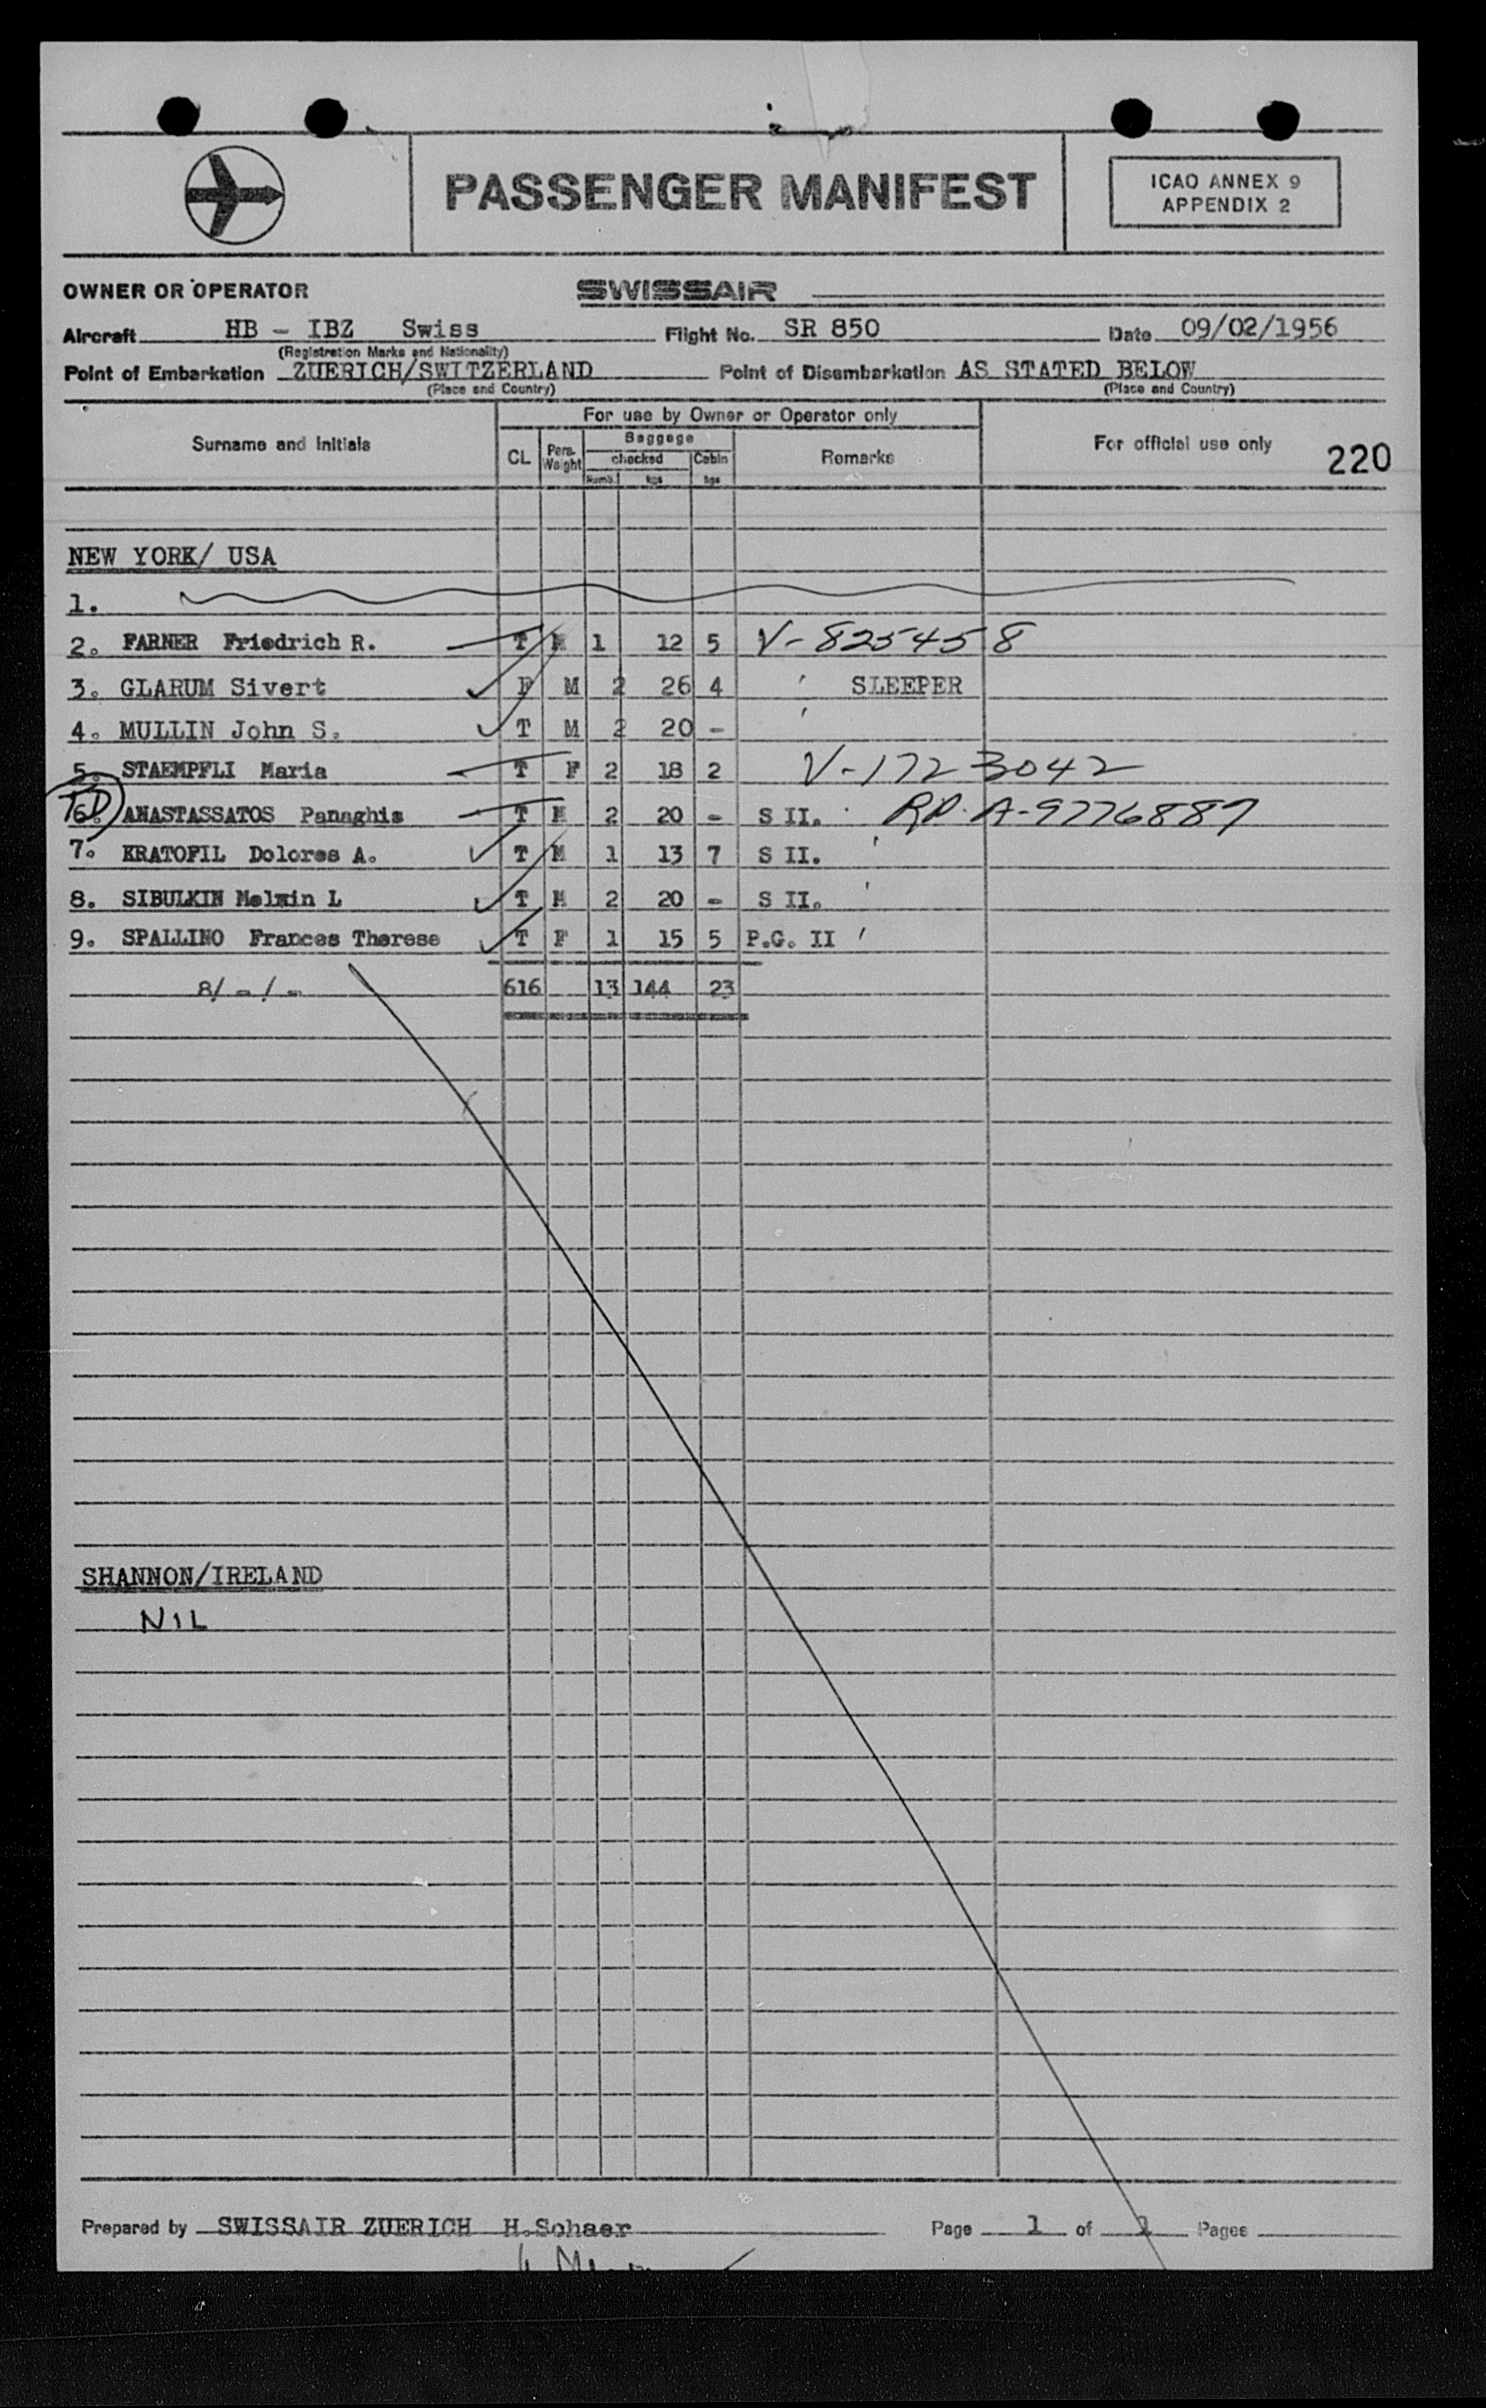 PASSENGER MANIFEST
ICAO ANNEX 9
APPENDIX 2
OWNER OR OPERATOR SWISSAIR
Aircraft HB - IBZ Swiss Flight No. SR 850 Date 09/02/1956
(Registration Marks and Nationality)
Point of Embarkation ZUERICH/SWITZERLAND Point of Disembarkation AS STATED BELOW
(Place and Country) (Place and Country)
For use by Owner or Operator only
Surname and Initials CL Pers. Weight Baggage checked Cabin Remarks For official use only 220
Numb. kgs kgs
NEW YORK/ USA
1.
2. FARNER Friedrich R. T M 1 12 5 V-825458
3. GLARUM Sivert F M 2 26 4 SLEEPER
4. MULLIN John S. T M 2 20 -
5. STAEMPFLI Maria T F 2 18 2 V-1723042
6. ANASTASSATOS Panaghis T M 2 20 - S II. A-9776887
7. KRATOFIL Dolores A. T M 1 13 7 S II.
8. SIBULKIN L T M 2 20 - S II.
9. SPALLINO Frances Therese T F 1 15 5 P.G. II
8/ - / - 616 13 144 23
SHANNON/IRELAND
NIL
Prepared by SWISSAIR ZUERICH H.Schaer Page 1 of 1 Pages